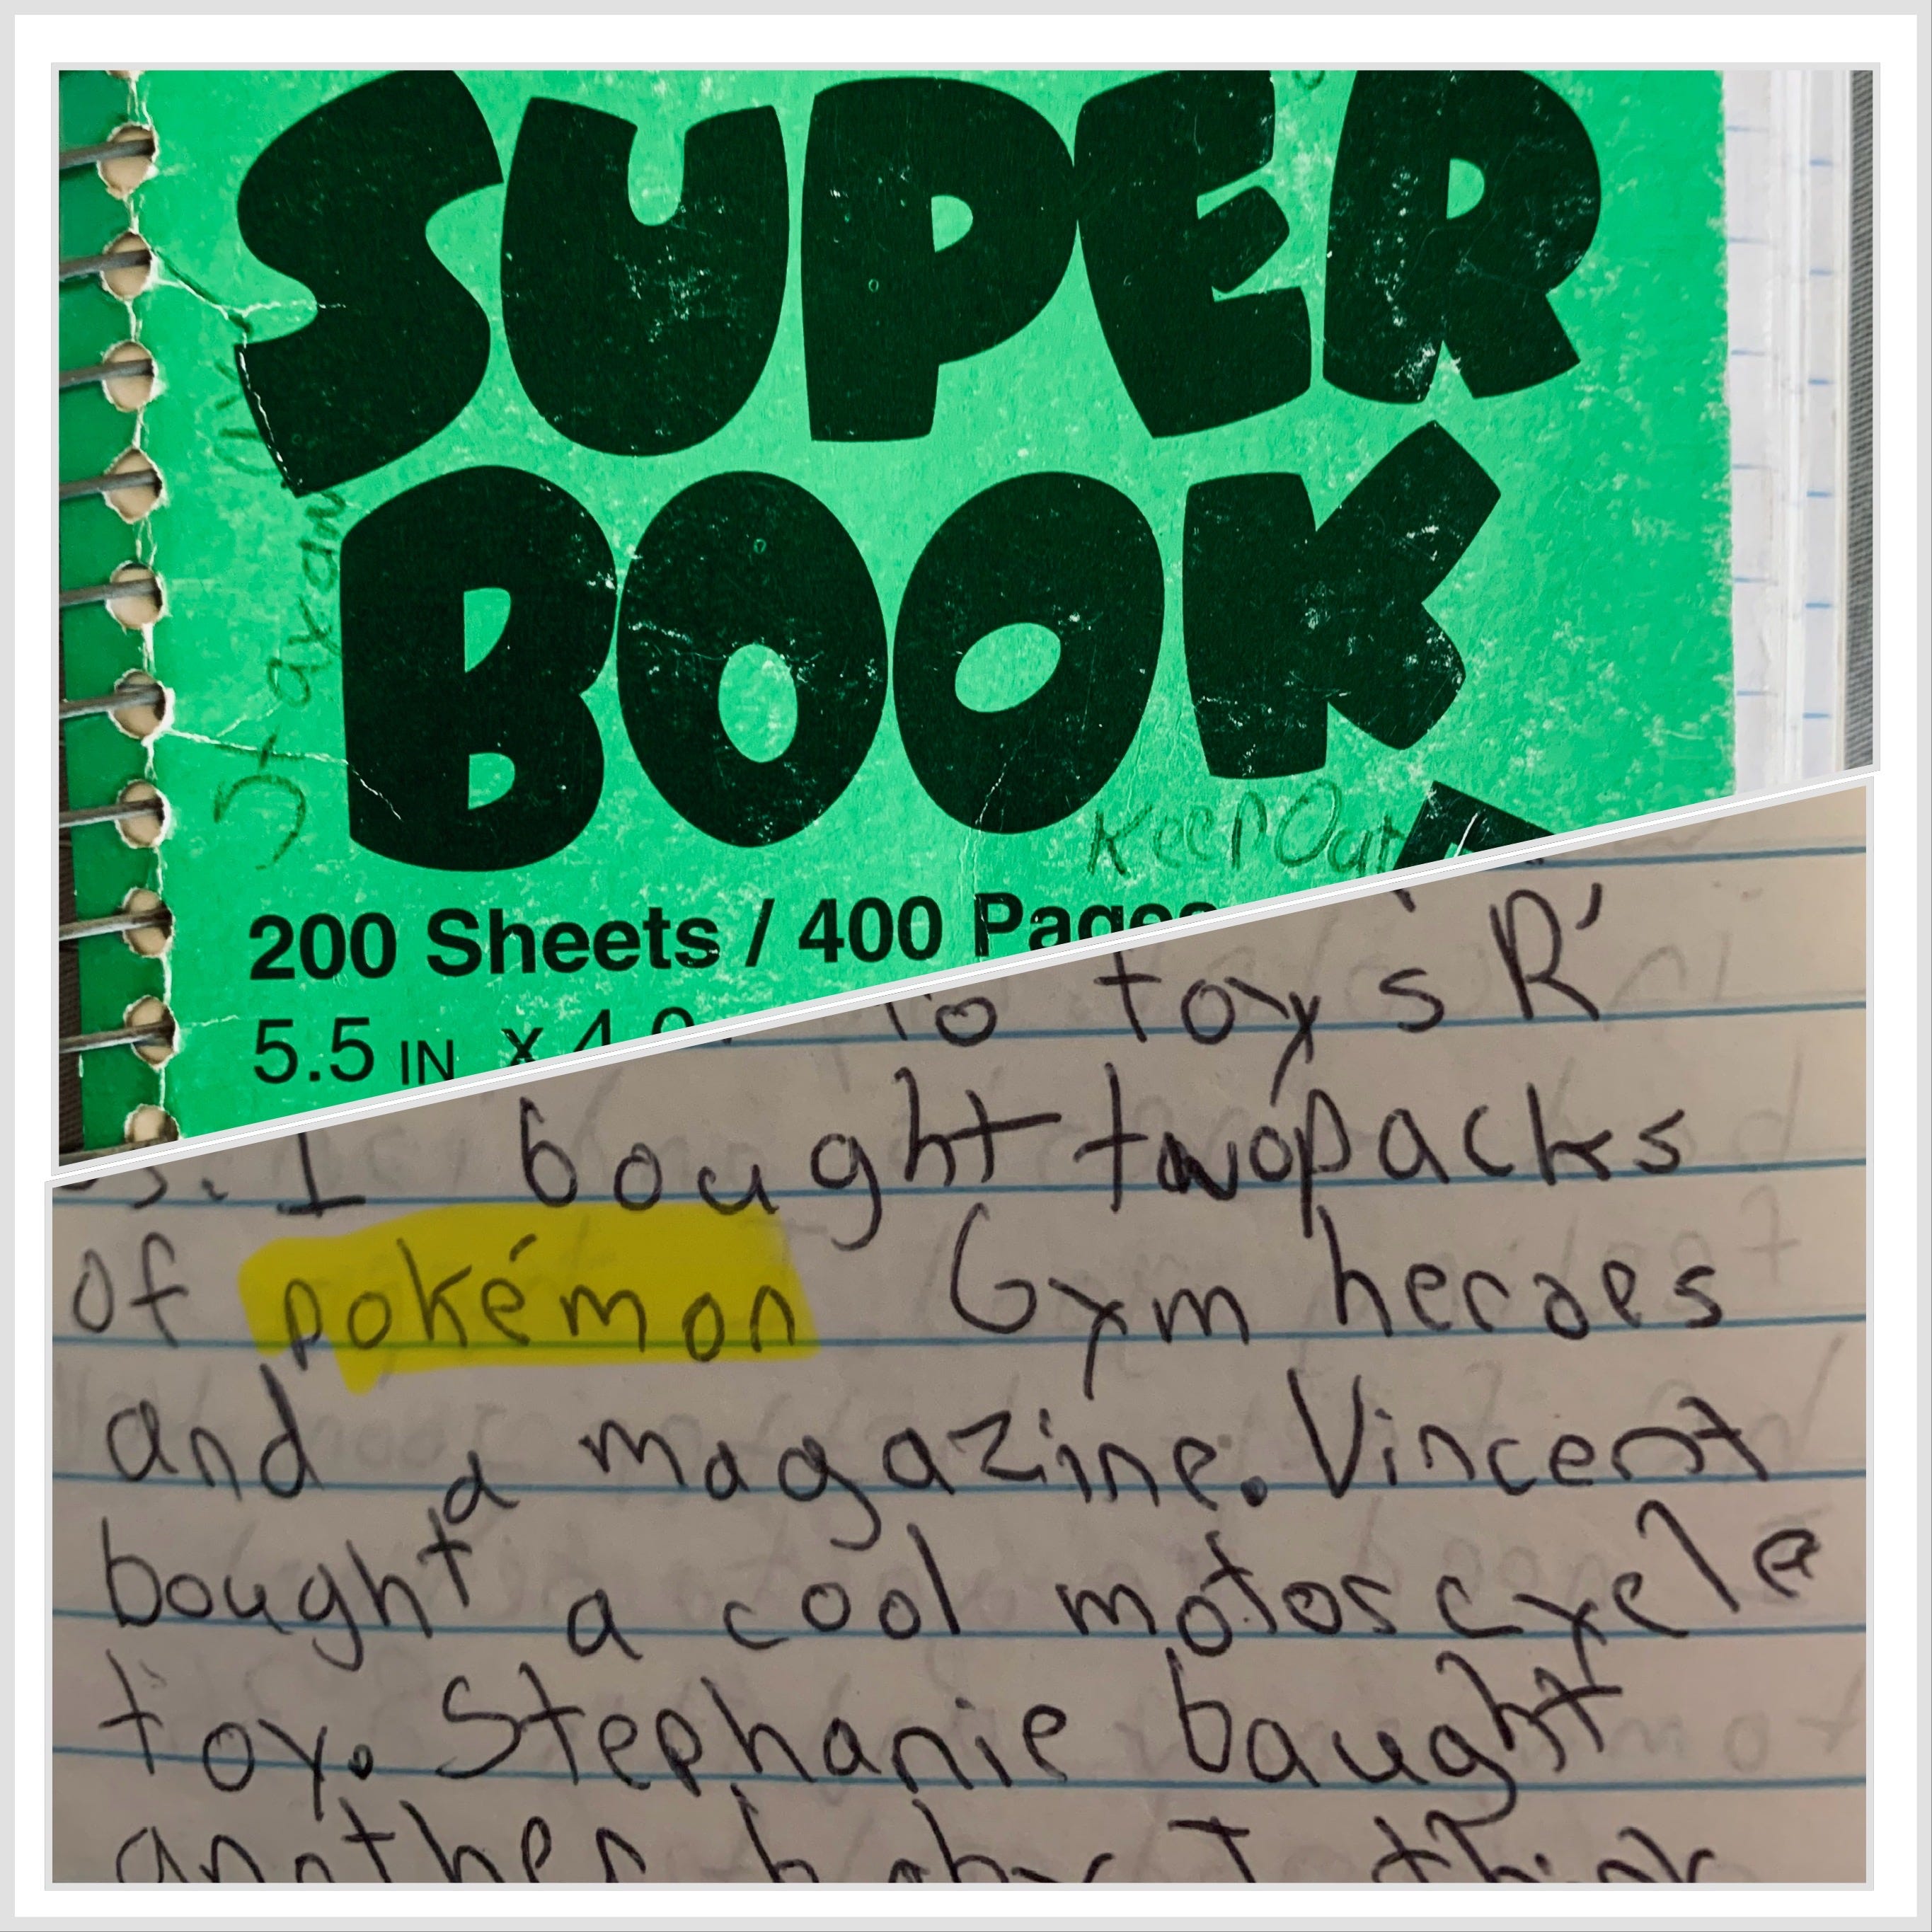 SUPER
BOOK
Keep Out
200 Sheets / 400 Pages
5.5 IN x 4
to toy's R'
s. I bought two packs
of pokémon Gym heroes
and a magazine. Vincent
bought a cool motoscycle
toy. Stephanie baught
another baby I think